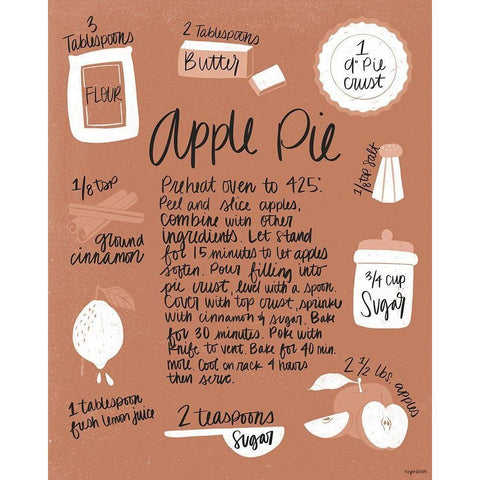 3
Tablespoons
FLOUR
2 Tablespoons
Butter
1
9" Pie
crust
apple pie
1/8 tsp
ground
cinnamon
1/8 tsp salt
Preheat oven to 425°.
Peel and slice apples,
combine with other
ingredients. Let stand
for 15 minutes to let apples
soften. Pour filling into
pie crust, level with a spoon.
Cover with top crust, sprinkle
with cinnamon & sugar. Bake
for 30 minutes. Poke with
knife to vent. Bake for 40 min.
more. Cool on rack 4 hours
then serve.
3/4 cup
Sugar
1 tablespoon
fresh lemon juice
2 teaspoons
Sugar
2 1/2 lbs apples